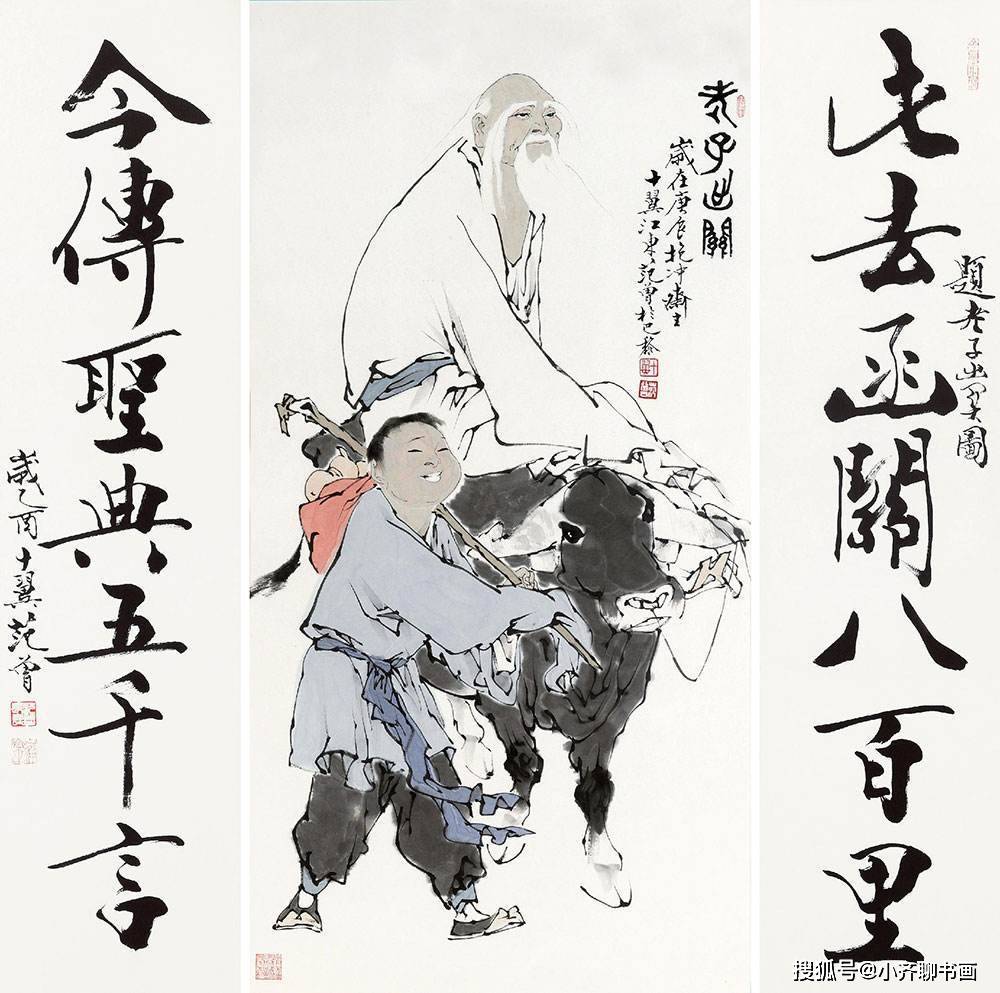 此去函關八百里
題老子出関圖
老子出關
歲在庚辰抱冲齋主
十翼江東范曾於巴黎
今傳聖典五千言
歲乙酉十翼范曾
搜狐号@小齐聊书画